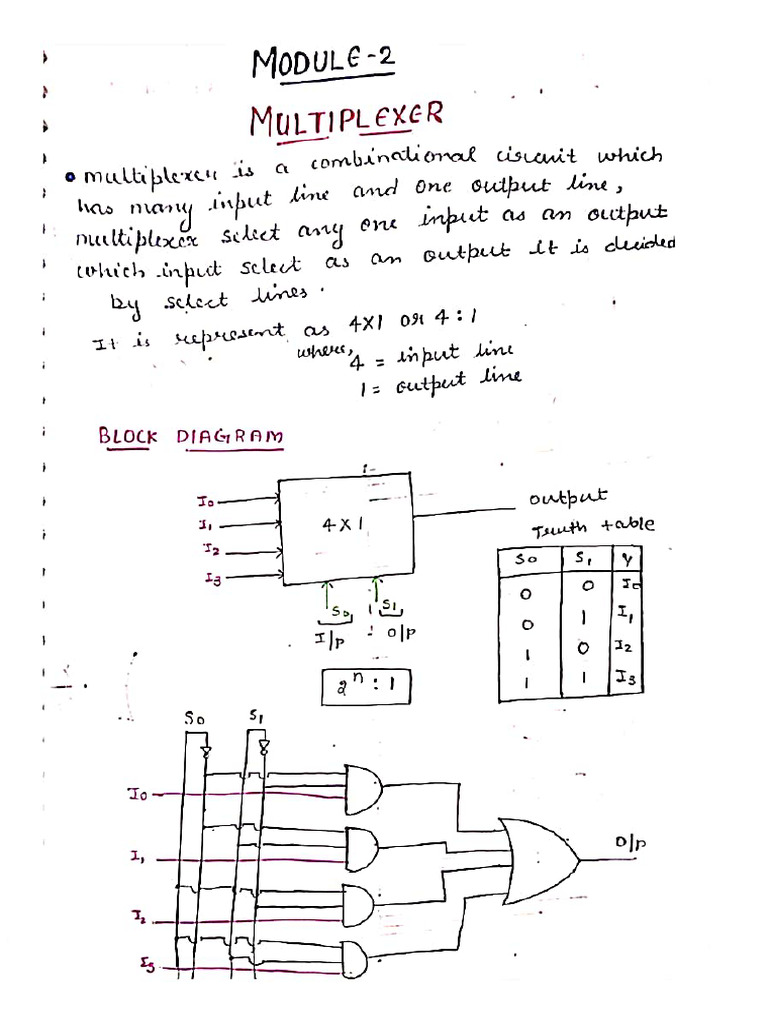 MODULE-2
MULTIPLEXER
multiplexer is a combinational circuit which
has many input line and one output line,
multiplexer select any one input as an output
which input select as an output it is decided
by select lines.
It is represent as 4X1 or 4:1
where, 4 = input line
1 = output line
BLOCK DIAGRAM
I0
I1
I2
I3
4X1
output
S0
S1
I/P : O/P
2^n : 1
Truth table
S0 S1 Y
0 0 I0
0 1 I1
1 0 I2
1 1 I3
S0 S1
I0
I1
I2
I3
O/P